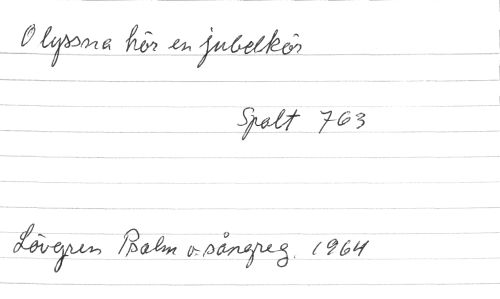 O lyssna hör en jubelkör
Spalt 763
Lövgren Psalm o. sångreg. 1964